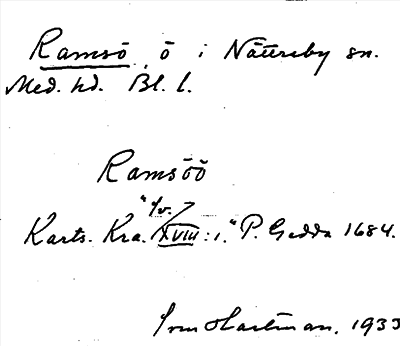 Ramsö, ö i Nättraby sn.
Med. hd. Bl. l.
Ramsöö
Karts. Kra. XVIII:1." P. Gedda 1684.
Hartman, 1933